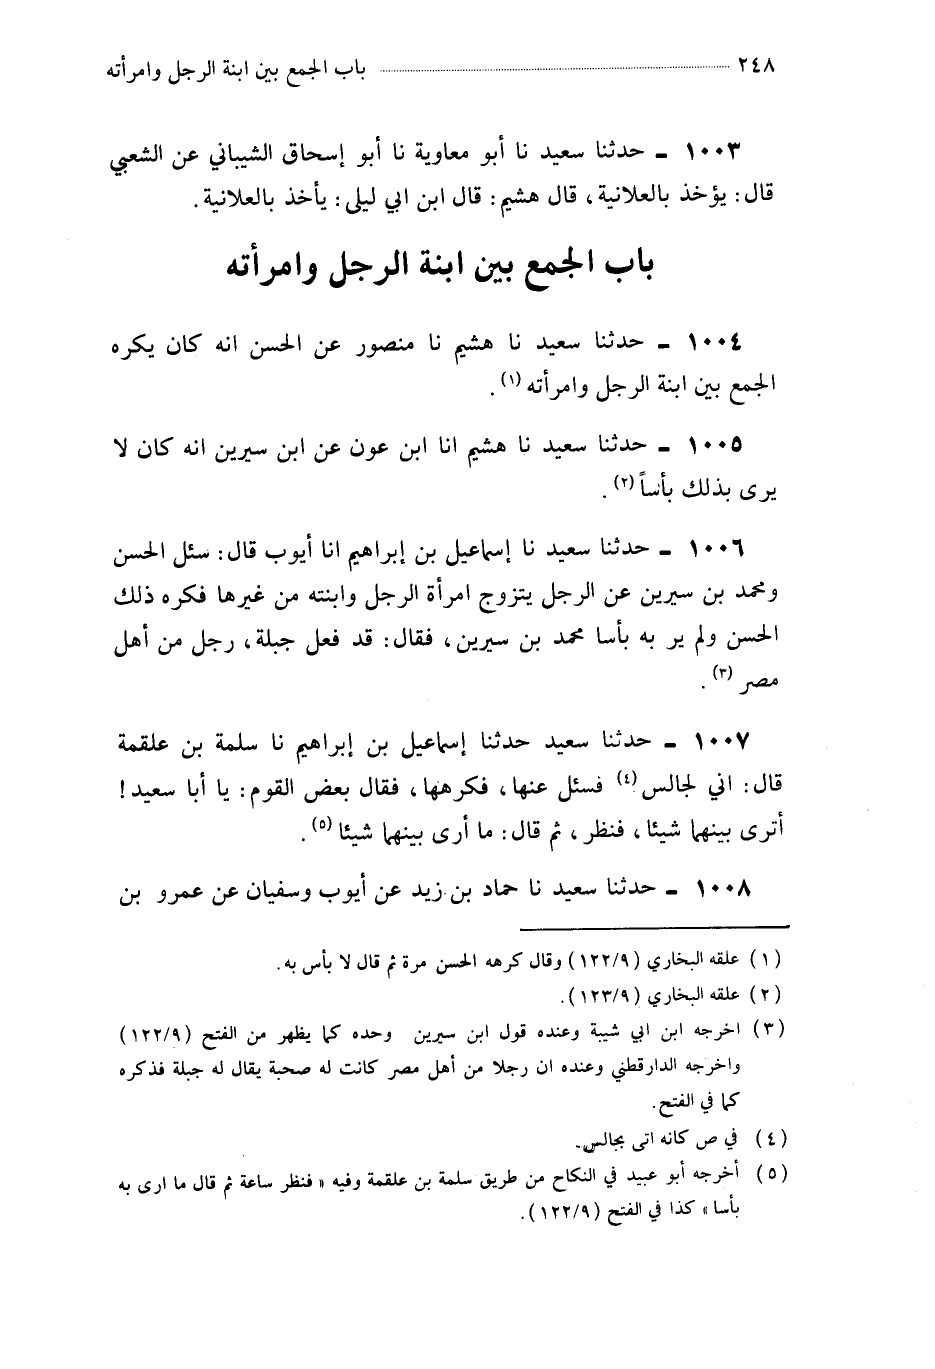 ٢٤٨ باب الجمع بين ابنة الرجل وامرأته
١٠٠٣ ـ حدثنا سعيد نا أبو معاوية نا أبو إسحاق الشيباني عن الشعبي
قال: يؤخذ بالعلانية، قال هشيم: قال ابن ابي ليلى: يأخذ بالعلانية.
باب الجمع بين ابنة الرجل وامرأته
١٠٠٤ ـ حدثنا سعيد نا هشيم نا منصور عن الحسن انه كان يكره
الجمع بين ابنة الرجل وامرأته (١).
١٠٠٥ ـ حدثنا سعيد نا هشيم انا ابن عون عن ابن سيرين انه كان لا
يرى بذلك بأساً (٢).
١٠٠٦ ـ حدثنا سعيد نا إسماعيل بن إبراهيم انا أيوب قال: سئل الحسن
ومحمد بن سيرين عن الرجل يتزوج امرأة الرجل وابنته من غيرها فكره ذلك
الحسن ولم ير به بأسا محمد بن سيرين، فقال: قد فعل جبلة، رجل من أهل
مصر (٣).
١٠٠٧ ـ حدثنا سعيد حدثنا إسماعيل بن إبراهيم نا سلمة بن علقمة
قال: اني لجالس (٤) فسئل عنها، فكرهها، فقال بعض القوم: يا أبا سعيد!
أترى بينهما شيئا، فنظر، ثم قال: ما أرى بينهما شيئا (٥).
١٠٠٨ ـ حدثنا سعيد نا حماد بن زيد عن أيوب وسفيان عن عمرو بن
(١) علقه البخاري (١٢٢/٩) وقال كرهه الحسن مرة ثم قال لا بأس به.
(٢) علقه البخاري (١٢٣/٩).
(٣) اخرجه ابن ابي شيبة وعنده قول ابن سيرين وحده كما يظهر من الفتح (١٢٢/٩)
واخرجه الدارقطني وعنده ان رجلا من أهل مصر كانت له صحبة يقال له جبلة فذكره
كما في الفتح.
(٤) في ص كانه اتى بجالس.
(٥) أخرجه أبو عبيد في النكاح من طريق سلمة بن علقمة وفيه « فنظر ساعة ثم قال ما ارى به
بأسا » كذا في الفتح (١٢٢/٩).